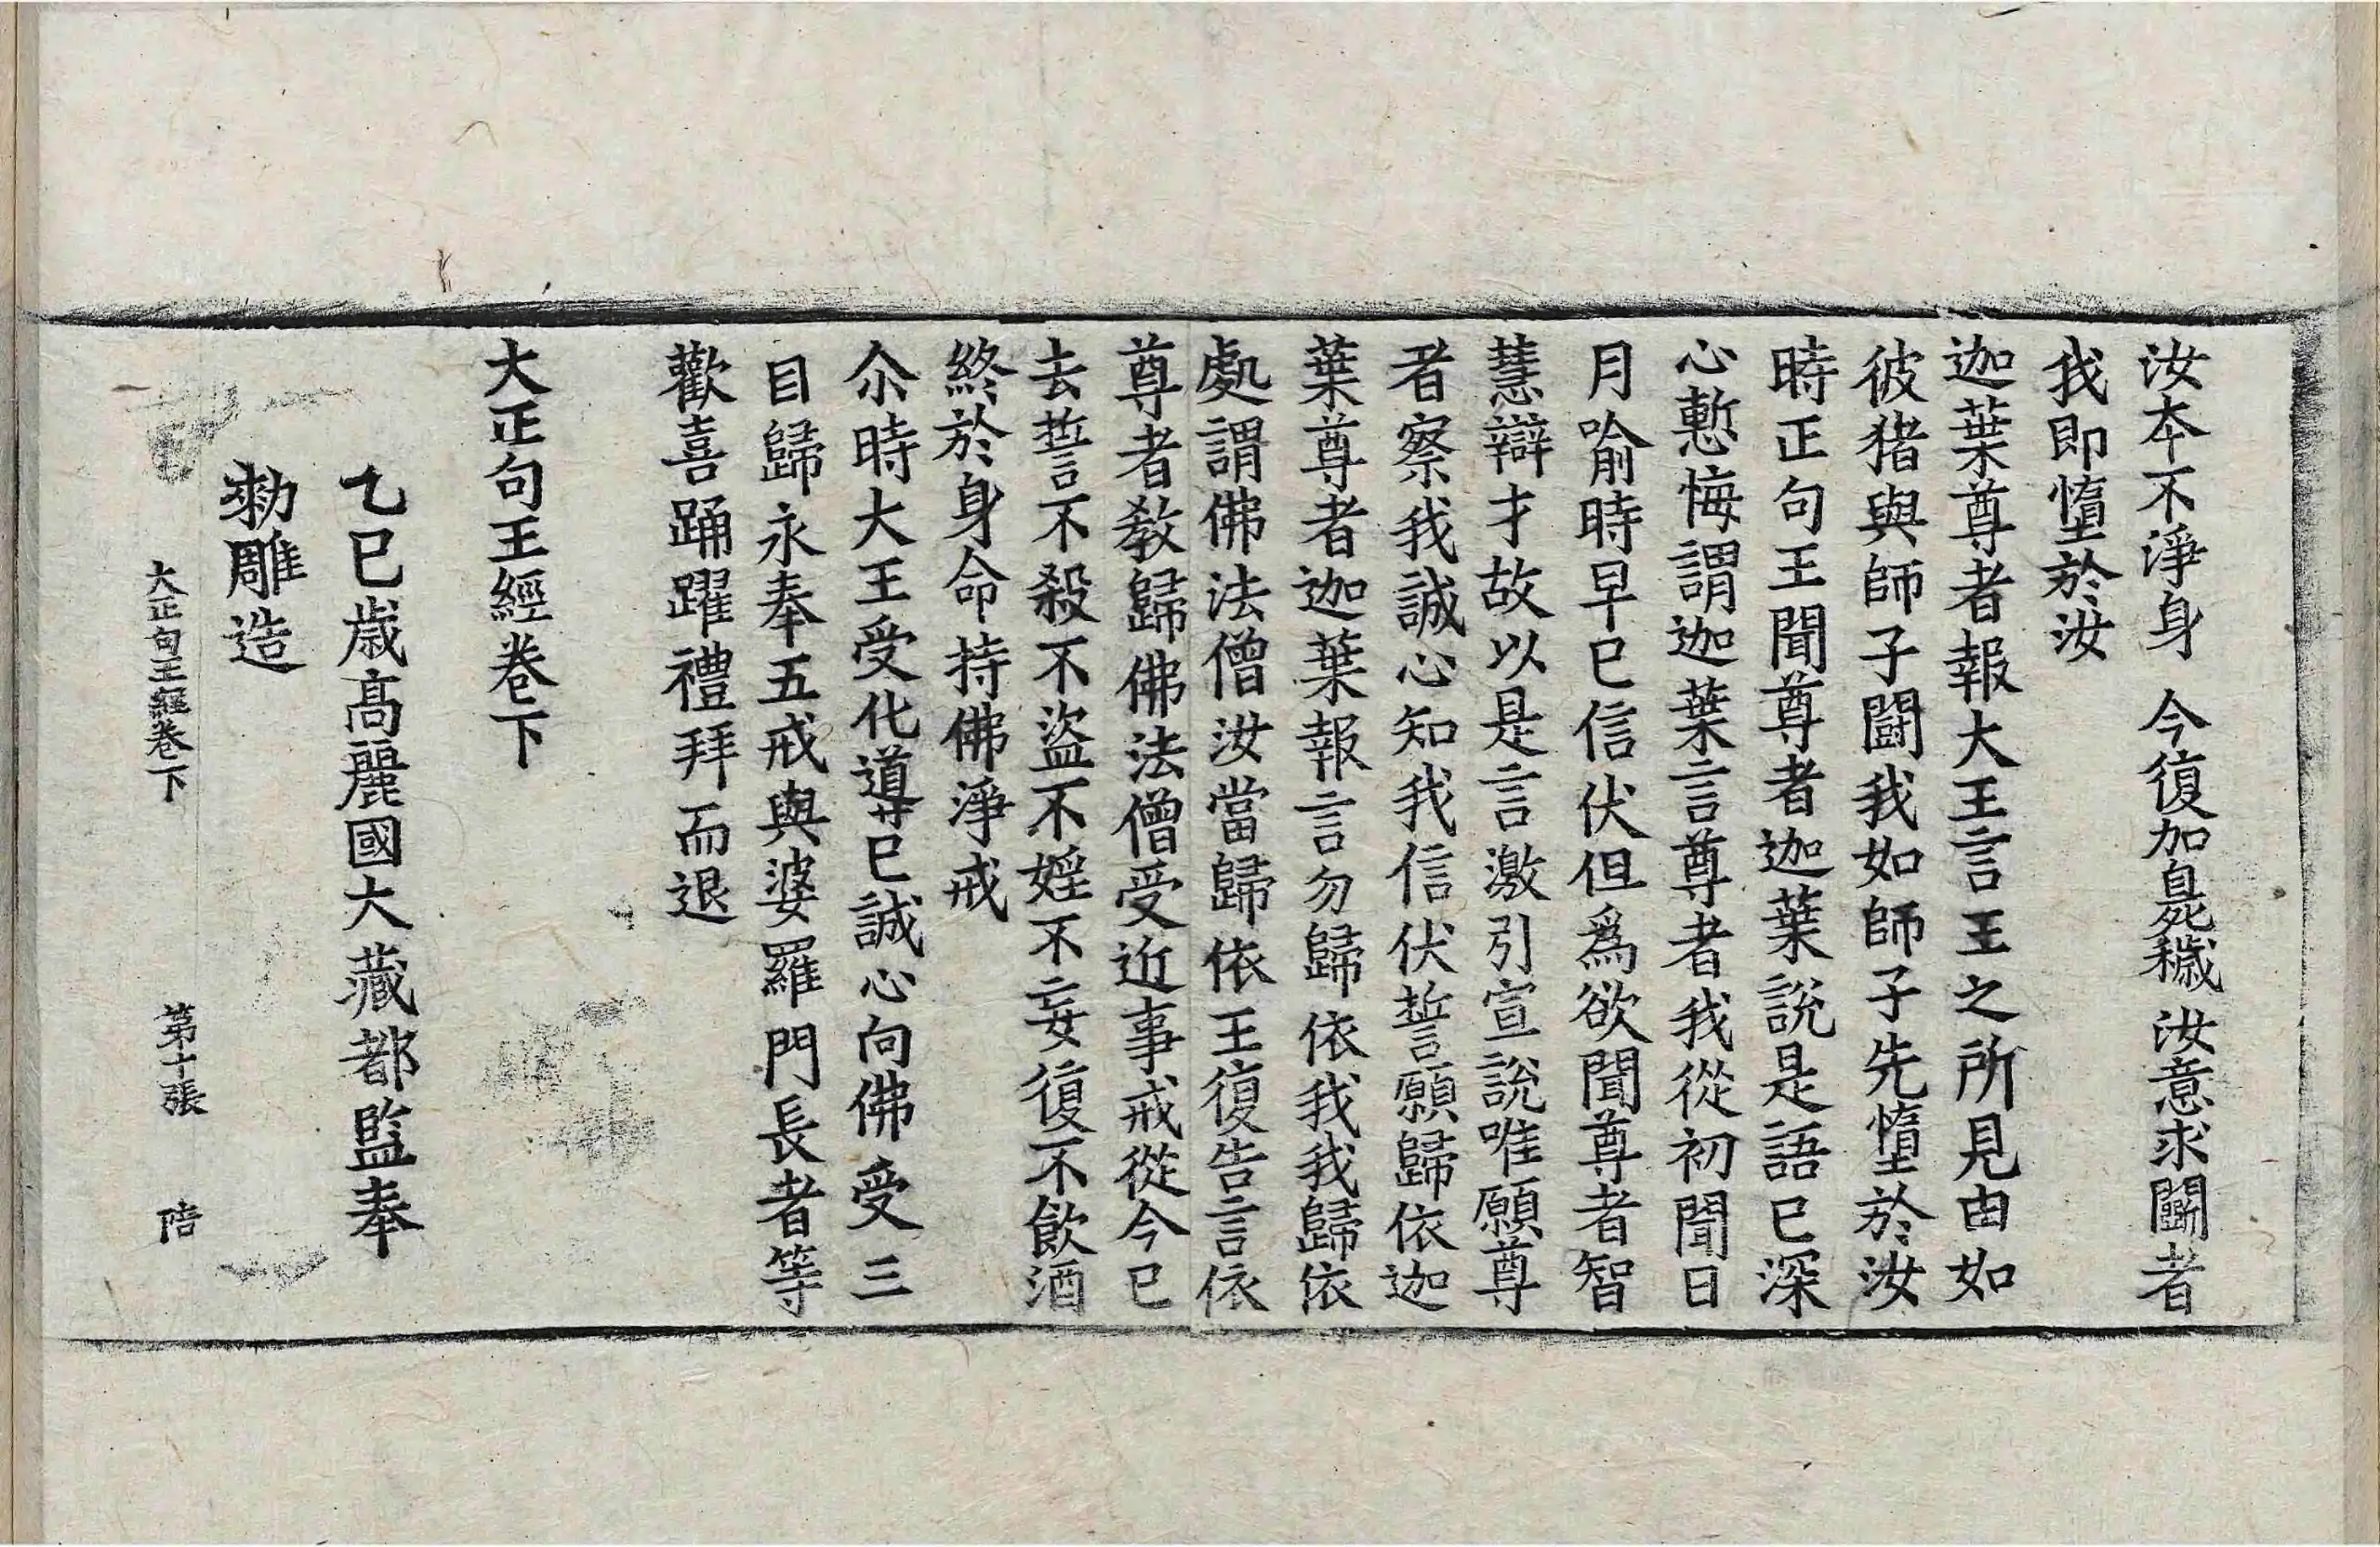 汝本不淨身　今復加臰穢　汝意求鬪者
我即墮於汝
迦葉尊者報大王言王之所見由如
彼猪與師子鬪我如師子先墮於汝
時正句王聞尊者迦葉說是語已深
心慙悔謂迦葉言尊者我從初聞日
月喻時早已信伏但爲欲聞尊者智
慧辯才故以是言激引宣說唯願尊
者察我誠心知我信伏誓願歸依迦
葉尊者迦葉報言勿歸依我我歸依
處謂佛法僧汝當歸依王復告言依
尊者教歸佛法僧受近事戒從今已
去誓不殺不盜不婬不妄復不飲酒
終於身命持佛淨戒
尒時大王受化導已誠心向佛受三
自歸永奉五戒與婆羅門長者等
歡喜踊躍禮拜而退
大正句王經卷下
乙巳歲高麗國大藏都監奉
勑雕造
大正句王經卷下　第十張　陪